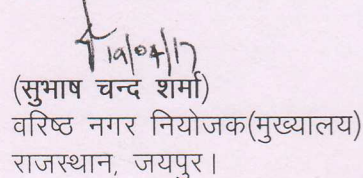 19/04/17
(सुभाष चन्द शर्मा)
वरिष्ठ नगर नियोजक(मुख्यालय)
राजस्थान, जयपुर।